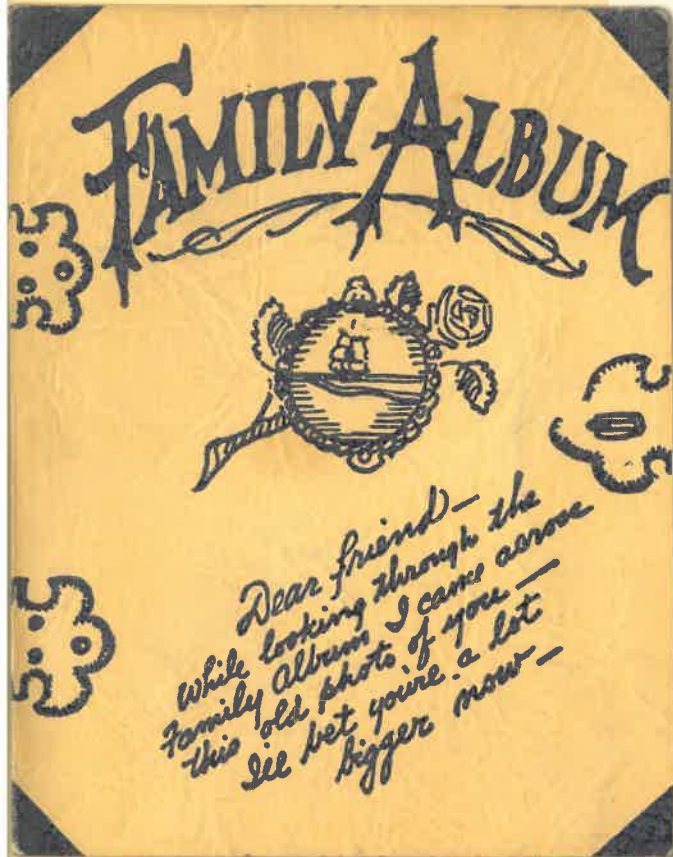 FAMILY ALBUM
Dear friend—
While looking through the
Family Album I came across
this old photo of you—
I'll bet you're a lot
bigger now—